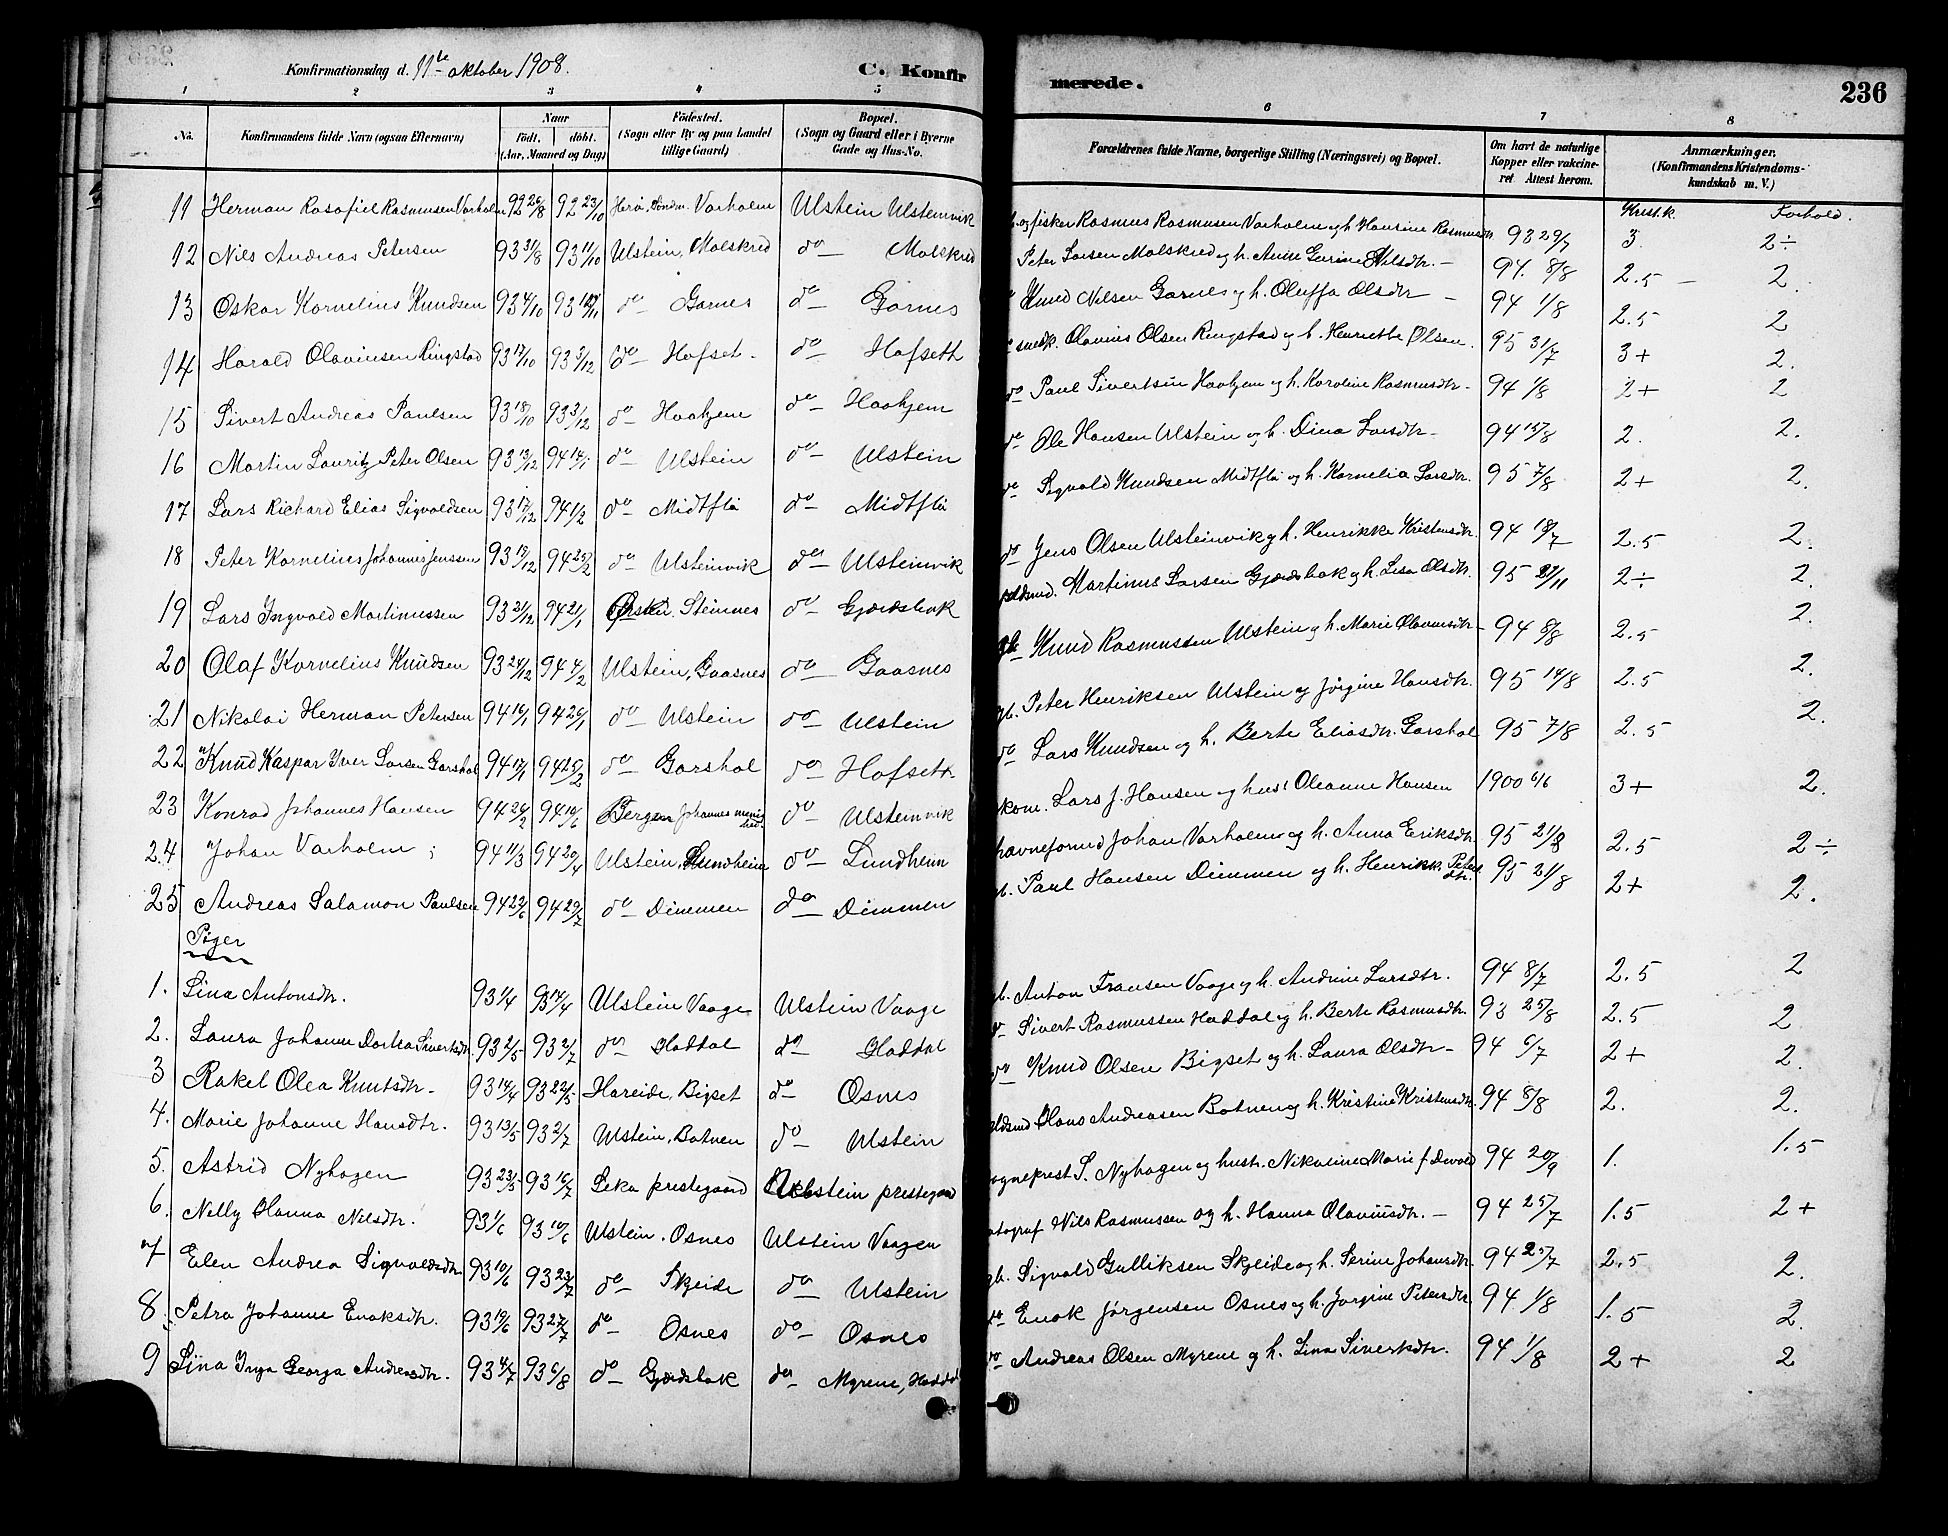 Konfirmationsdag d. 11te oktober 1908.
C. Konfirmerede.
236
1 2 3 4 5 6 7 8
No.
Konfirmandens fulde Navn (ogsaa Efternavn)
Naar
född, döbt,
(Aar, Maaned og Dag)
Födested.
(Sogn eller By og paa Landet
tillige Gaard)
Bopæl.
(Sogn og Gaard eller i Byerne
Gade og Hus-No.
Forældrenes fulde Navne, borgerlige Stilling (Næringsvei) og Bopæl.
Om havt de naturlige
Kopper eller vakcine-
ret Attest herom.
Anmærkninger.
(Konfirmandens Kristendoms-
kundskab m. V.)
Krist.k. Forhold.
11 Herman Rasafiel Rasmussen Varholm 92 26/8 92 23/10 Herö, Söndm. Varholm Ulstein Ulsteinvik og fisker Rasmus Rasmussen Varholm og h. Hansine Rasmusdtr. 98 29/7 3. 2÷
12 Nils Andreas Petersen 93 31/8 93 11/10 Ulstein, Malskred do Malskred Peter Larsen Malskred og h. Anne Gurine Nilsdtr. 94. 8/8 2.5 2.
13 Oskar Kornelius Knudsen 93 4/10 93 19/11 do Garnes do Garnes Knud Nilsen Garnes og h. Oluffa Olsdtr 94 1/8 2.5 2
14 Harald Olavinsen Ringstad 93 17/10 93 3/12 do Hofset. do Hofseth snedk. Olavins Olsen Ringstad og h. Henriette Olsen. 95 31/7 3+ 2.
15 Sivert Andreas Paulsen 93 18/10 93 3/12 do Haahjem do Haahjem do Paul Sivertsen Haahjem og h. Karoline Rasmusdtr. 94 1/8 2+ 2
16 Martin Lauritz Peter Olsen 93 13/12 94 14/1 do Ulstein do Ulstein do Ole Hansen Ulstein og h. Dina Larsdtr 94 15/8 2. 2.
17 Lars Richard Elias Sigvaldsen 93 17/12 94 1/2 do Midtflö do Midtflö do Sigvald Knudsen Midtflö og h. Kornelia Larsdtr. 95 7/8 2+ 2.
18 Peter Kornelius Johannes Jenssen 93 17/12 94 25/2 do Ulsteinvik do Ulsteinvik do Jens Olsen Ulsteinvik og h. Henrikke Kristensdtr. 94 18/7 2.5 2.
19 Lars Ingvald Martinussen 93 21/12 94 21/1 Örsten. Steinnes do Gjærdsbak Martinus Larsen Gjærdsbak og h. Lisa Olsdtr. 95 27/11 2÷ 2.
20 Olaf Kornelius Knudsen 93 24/12 94 4/2 Ulstein, Gaasnes do Gaasnes gb Knud Rasmussen Ulstein og h. Marie Olavinsdtr 94 8/8 2.5 2.
21 Nikolai Herman Petersen 94 16/1 94 26/1 do Ulstein do Ulstein gb. Peter Henriksen Ulstein og Jörgine Hansdtr. 95 14/8 2.5 2.
22 Knud Kaspar Iver Larsen Garshol 94 17/1 94 25/2 do Garshol do Hofseth do Lars Knudsen og h. Berte Eliasdtr. Garshol 95 7/8 2.5 2.
23 Konrad Johannes Hansen 94 24/2 94 10/6 Bergen Johannes menighed. do Ulsteinvik Lars J. Hansen og hust Oleanne Hansen 1900 6/6 3+ 2.
24 Johan Varholm 94 11/3 94 20/4 Ulstein, Lundheim do Lundheim havneformd Johan Varholm og h. Anna Eriksdtr. 95 21/8 2.5 2÷
25 Andreas Salamon Paulsen 94 22/6 94 29/7 do Dimmen do Dimmen gb. Paul Hansen Dimmen og h. Henrikk. Petersdtr. 95 21/8 2+ 2.
Piger
1. Lina Antonsdtr. 93 1/4 93 17/4 Ulstein Vaage Ulstein Vaage gb. Anton Fransen Vaage og h. Andrine Larsdtr. 94 8/7 2.5 2
2. Laura Johanne Dortea Sivertsdtr. 93 2/5 93 2/7 do Haddal do Haddal do Sivert Rasmussen Haddal og h. Berte Rasmusdtr. 93 25/8 2.5 2
3 Rakel Olea Knutsdtr. 93 14/4 93 22/5 Hareide, Bigset do Osnes do Knud Olsen Bigset og h. Laura Olsdtr 94 6/7 2+ 2.
4. Marie Johanne Hansdtr. 93 13/5 93 2/7 Ulstein, Botnen do Ulstein Hans Andreasen Botnen og h. Kristine Kristensdtr. 94 8/8 2. 2.
5. Astrid Nyhagen 93 23/5 93 16/7 Leka prestegaard Ulstein prestegaard sogneprest S. Nyhagen og hustr. Nikoline Marie f. Devold 94 20/9 1. 1.5
6. Nelly Hanna Nilsdtr. 93 1/6 93 10/6 Ulstein, Osnes Ulstein Vaagen fotograf Nils Rasmussen og h. Hanna Olaviusdtr. 94 25/7 1.5 2+
7 Elen Andrea Sigvaldsdtr. 93 10/6 93 23/7 do Skjeide do Ulstein gb. Sigvald Gulliksen Skjeide og h. Serine Johansdtr. 94 25/7 2.5 2.
8. Petra Johanne Enoksdtr. 93 19/6 93 27/7 do Osnes do Osnes do Enok Jörgensen Osnes og h. Jörgine Petersdtr. 94 1/8 1.5 2.
9 Lina Inga Georga Andreasdtr. 93 4/7 93 6/8 do Gjærdsbak do Myrene, Haddal do Andreas Olsen Myrene og h. Lina Sivertsdtr. 94 1/8 2+ 2